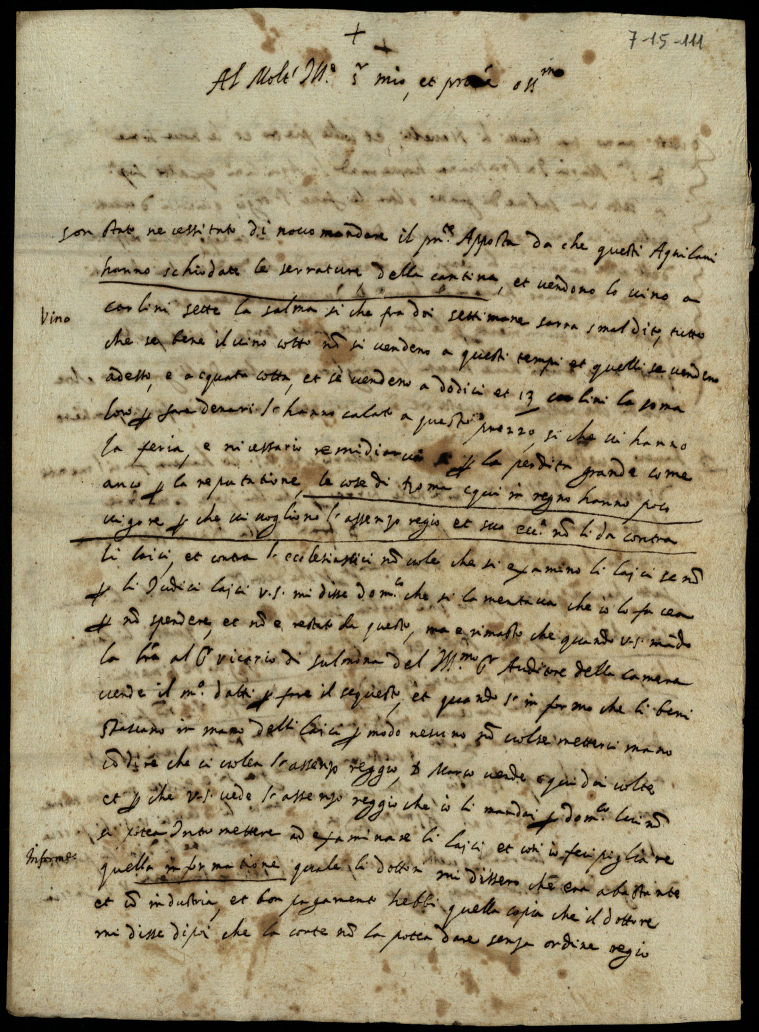 7-15-111
+ +
Al Molt' Ill.e s.r mio, et oss.mo
son stato necessitato di novo mandare il pn.te Apposta da che questi Aquilani
hanno schiodate le serrature della cantina, et vendono lo vino a
Vino
carlini sette la salma si che fra doi settimane sarra smaldito, tutto
che se bene il vino cotto nō si vendeno a questi tempi et quelli se vendeno
adesso, e acquata cotta, et se vendeno a dodici et 13 carlini la soma
loro ꝑ fare denari l'hanno calato a questo prezzo, si che vi hanno
la feria, e necessario remidiarvi ꝑ la perdita grande come
anco ꝑ la reputatione, le cose di Roma qui in regno hanno poco
vigore ꝑ che vi vogliono l'assenzo regio et sua ecc.a nō li da contra
li laici, et contra l'ecclesiastici nō vole che si examino li laici se nō
ꝑ li Judici laici v.s. mi disse dom.co che si lamentava che io lo facea
ꝑ nō spendere, et nō e restato da questo, ma e rimasto che quando v.s. mandò
la l'ra al vicario di sulmona del Ill.mo Auditore della Camera
vende il m.o d'atti ꝑ fare il sequestro, et quando s'informò che li beni
stavano in mano delli laici ꝑ modo nesuno nō volse metterci mano
cō dire che ci volea l'assenzo reggio, Marco vende qui doi volte
et ꝑ che v.s. vede l'assenzo reggio che io li mandai ꝑ dom.co lui nō
si potea Intromettere ad examinare li laici et cosi io feci pigliare
Informe
quella informatione quale li dottori mi dissero che era abastante
et cō industria, et bon pagamento hebbi quella copia che il dottore
mi disse dipoi che la corte nō la potea dare senza ordine regio